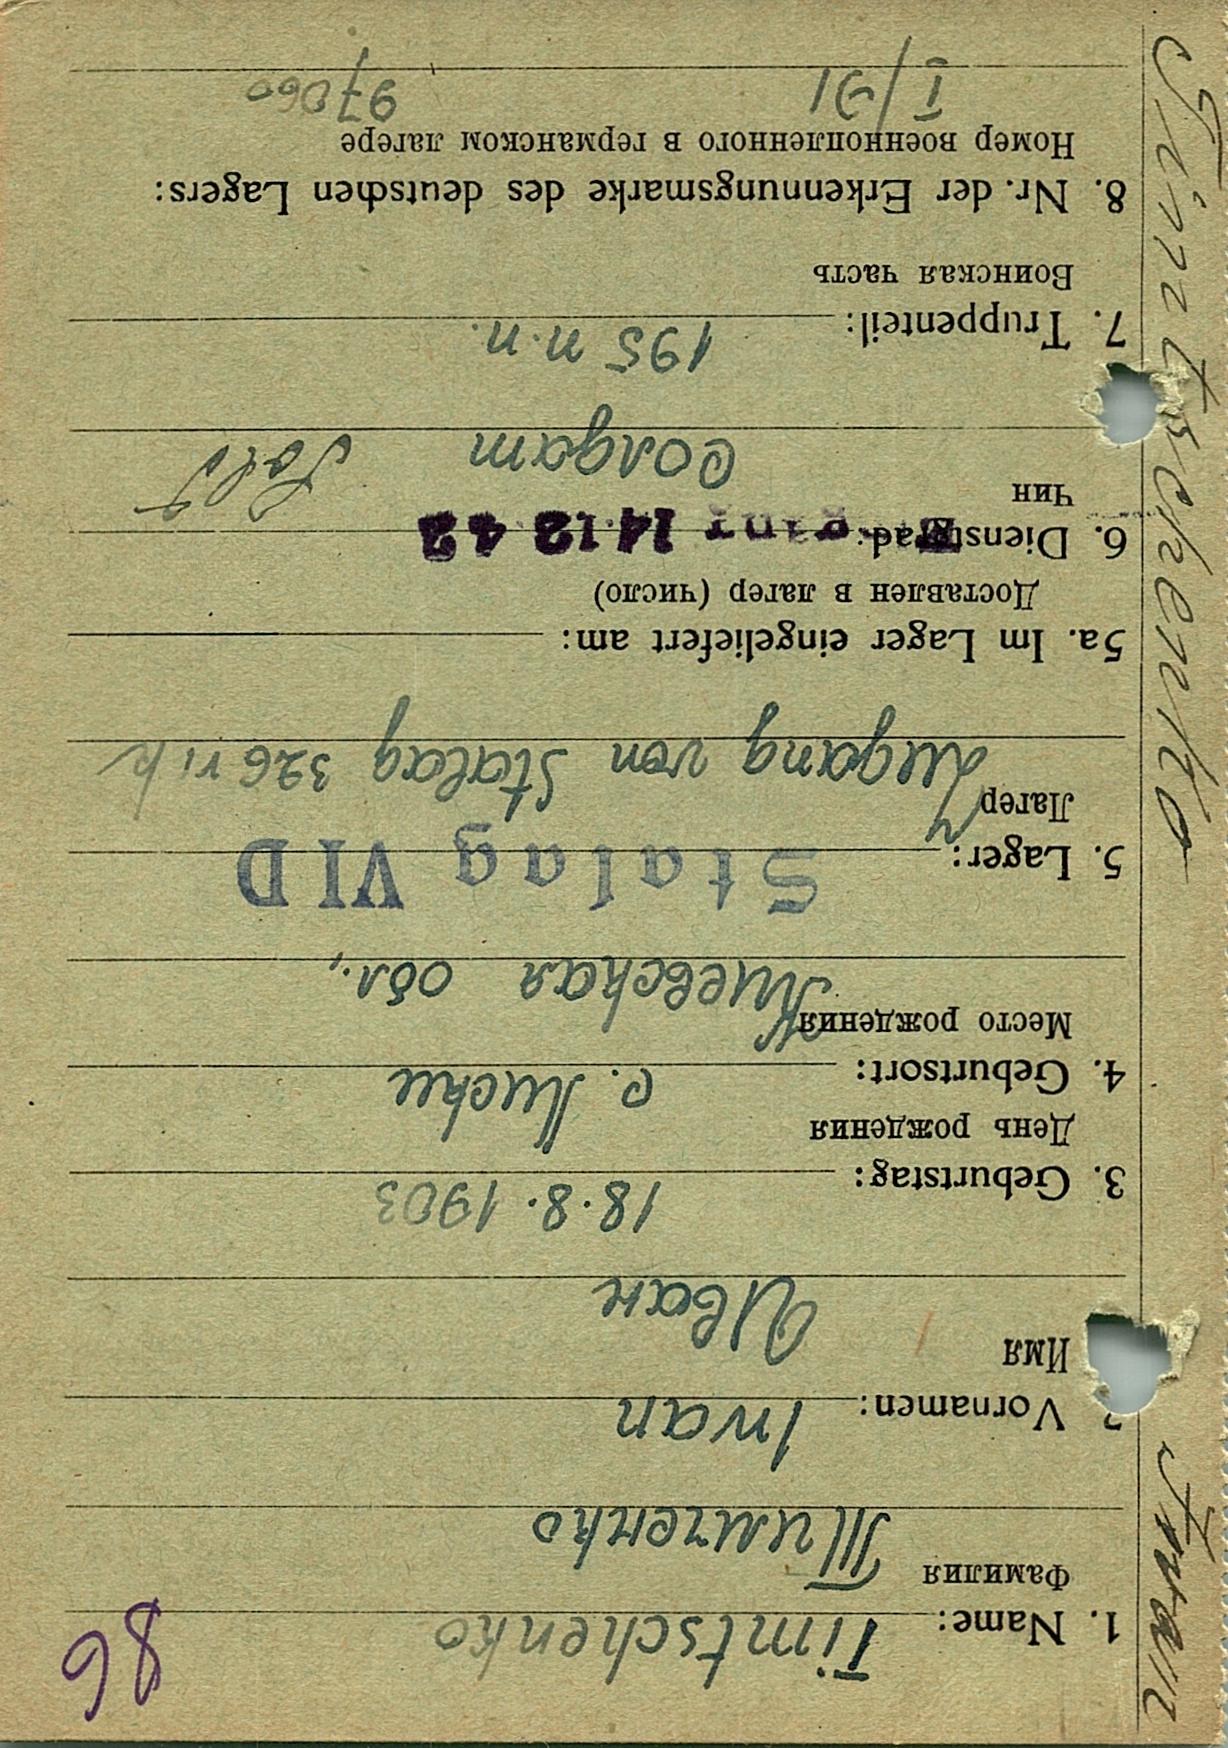 86
1. Name: Timtschenko
Фамилия Тимченко
2 Vornamen: Iwan
Имя Иван
3. Geburtstag: 18.8.1903
День рождения
4. Geburtsort: с. Лиски
Место рождения Киевская обл.,
5. Lager: Stalag VI D
Лагер Zugang von Stalag 326 VI K
5a. Im Lager eingeliefert am:
Доставлен в лагер (число)
6. Dienstgrad: 14 12 42
Чин солдат Sold
7. Truppenteil: 195 п.п.
Воинская часть
8. Nr. der Erkennungsmarke des deutschen Lagers:
Номер военнопленного в германском лагере
97060
Timtschenko Iwan